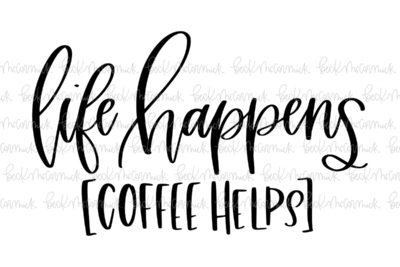 life happens
[COFFEE HELPS]